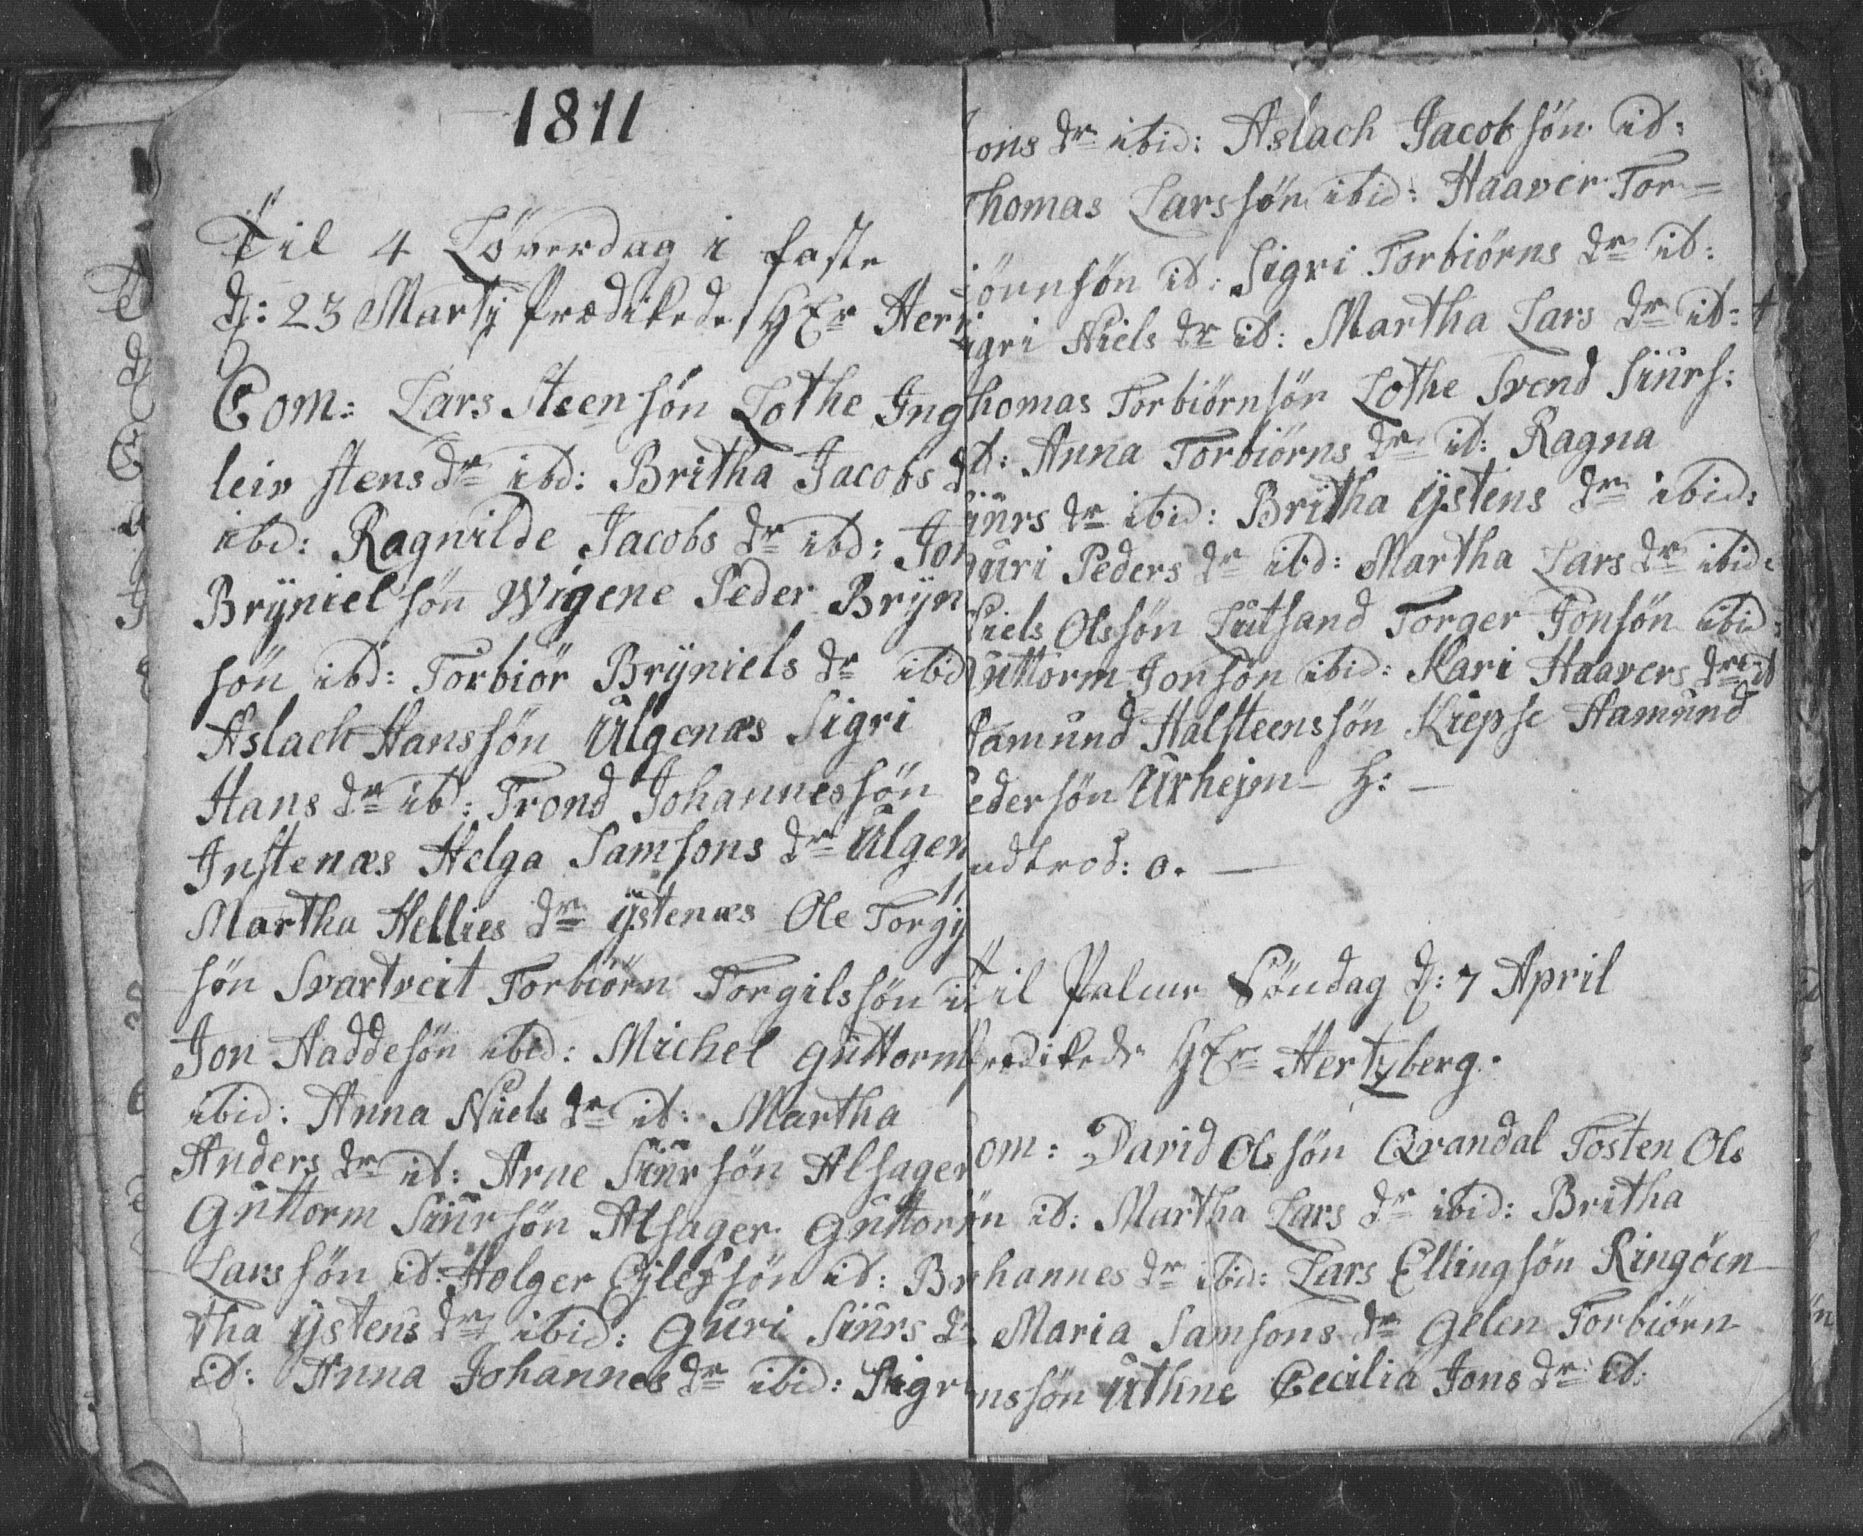 1811
Til 4 Löverdag i faste
d: 23 Martij Prædikede HEr Her
Com: Lars Steensön Lothe Ing
leiv stens dr ibd: Britha Jacobs d
ibd: Ragnilde Jacobs dr ibd: Jon
Brÿnielsön Wigene Peder Brÿn
sön ibd: Torbiör Brÿniels dr ibid
Aslach Hanssön Ulgenæs Sigri
Hans dr ib: Trond Johannessön
Instenæs Helga Samsons dr Ulgen
Martha Hellies dr ÿstenæs Ole Torgij
sön Svartveit Torbiörn Torgilssön i
Jon Haddesön ibid: Michel Guttorm
ibid: Anna Niels dr it: Martha
Anders dr it: Arne Siursön Alsager
Guttorm Siursön Alsager Guttor
Larssön it: Holger Eÿlefsön it: Br
tha ÿstens dr ibid: Guri Siurs d
it: Anna Johannes dr ibid: Sigr
ons dr ibid: Aslach Jacobsön it:
homas Larssön ibid: Haaver Tor=
iörnsön it: Sigri Torbiörns dr it:
igri Niels dr it: Martha Lars dr it:
homas Torbiörnsön Lothe Svend Siurs:
t: Anna Torbiörns dr it: Ragna
iurs dr ibid: Britha ÿstens dr ibid:
uri Peders dr ibd: Martha Lars dr ibid:
iels Olssön Lutsand Torger Jonsön ibid:
uttorm Jonsön ibid: Kari Haavers dr it
amund Halsteenssön Kiepse Aamund
edersön Urhejm - h: -
ndtrod: 0. -
Til Palme Söndag d: 7 April
rædikede HEr Hertzberg.
om: David Olssön Qvandal Tosten Ols
ön it: Martha Lars dr ibid: Britha
hannes dr ibid: Lars Ellingsön Ringöen
Maria Samsons dr Gelen Torbiörn
nssön Uthne Cecilia Jons dr it: